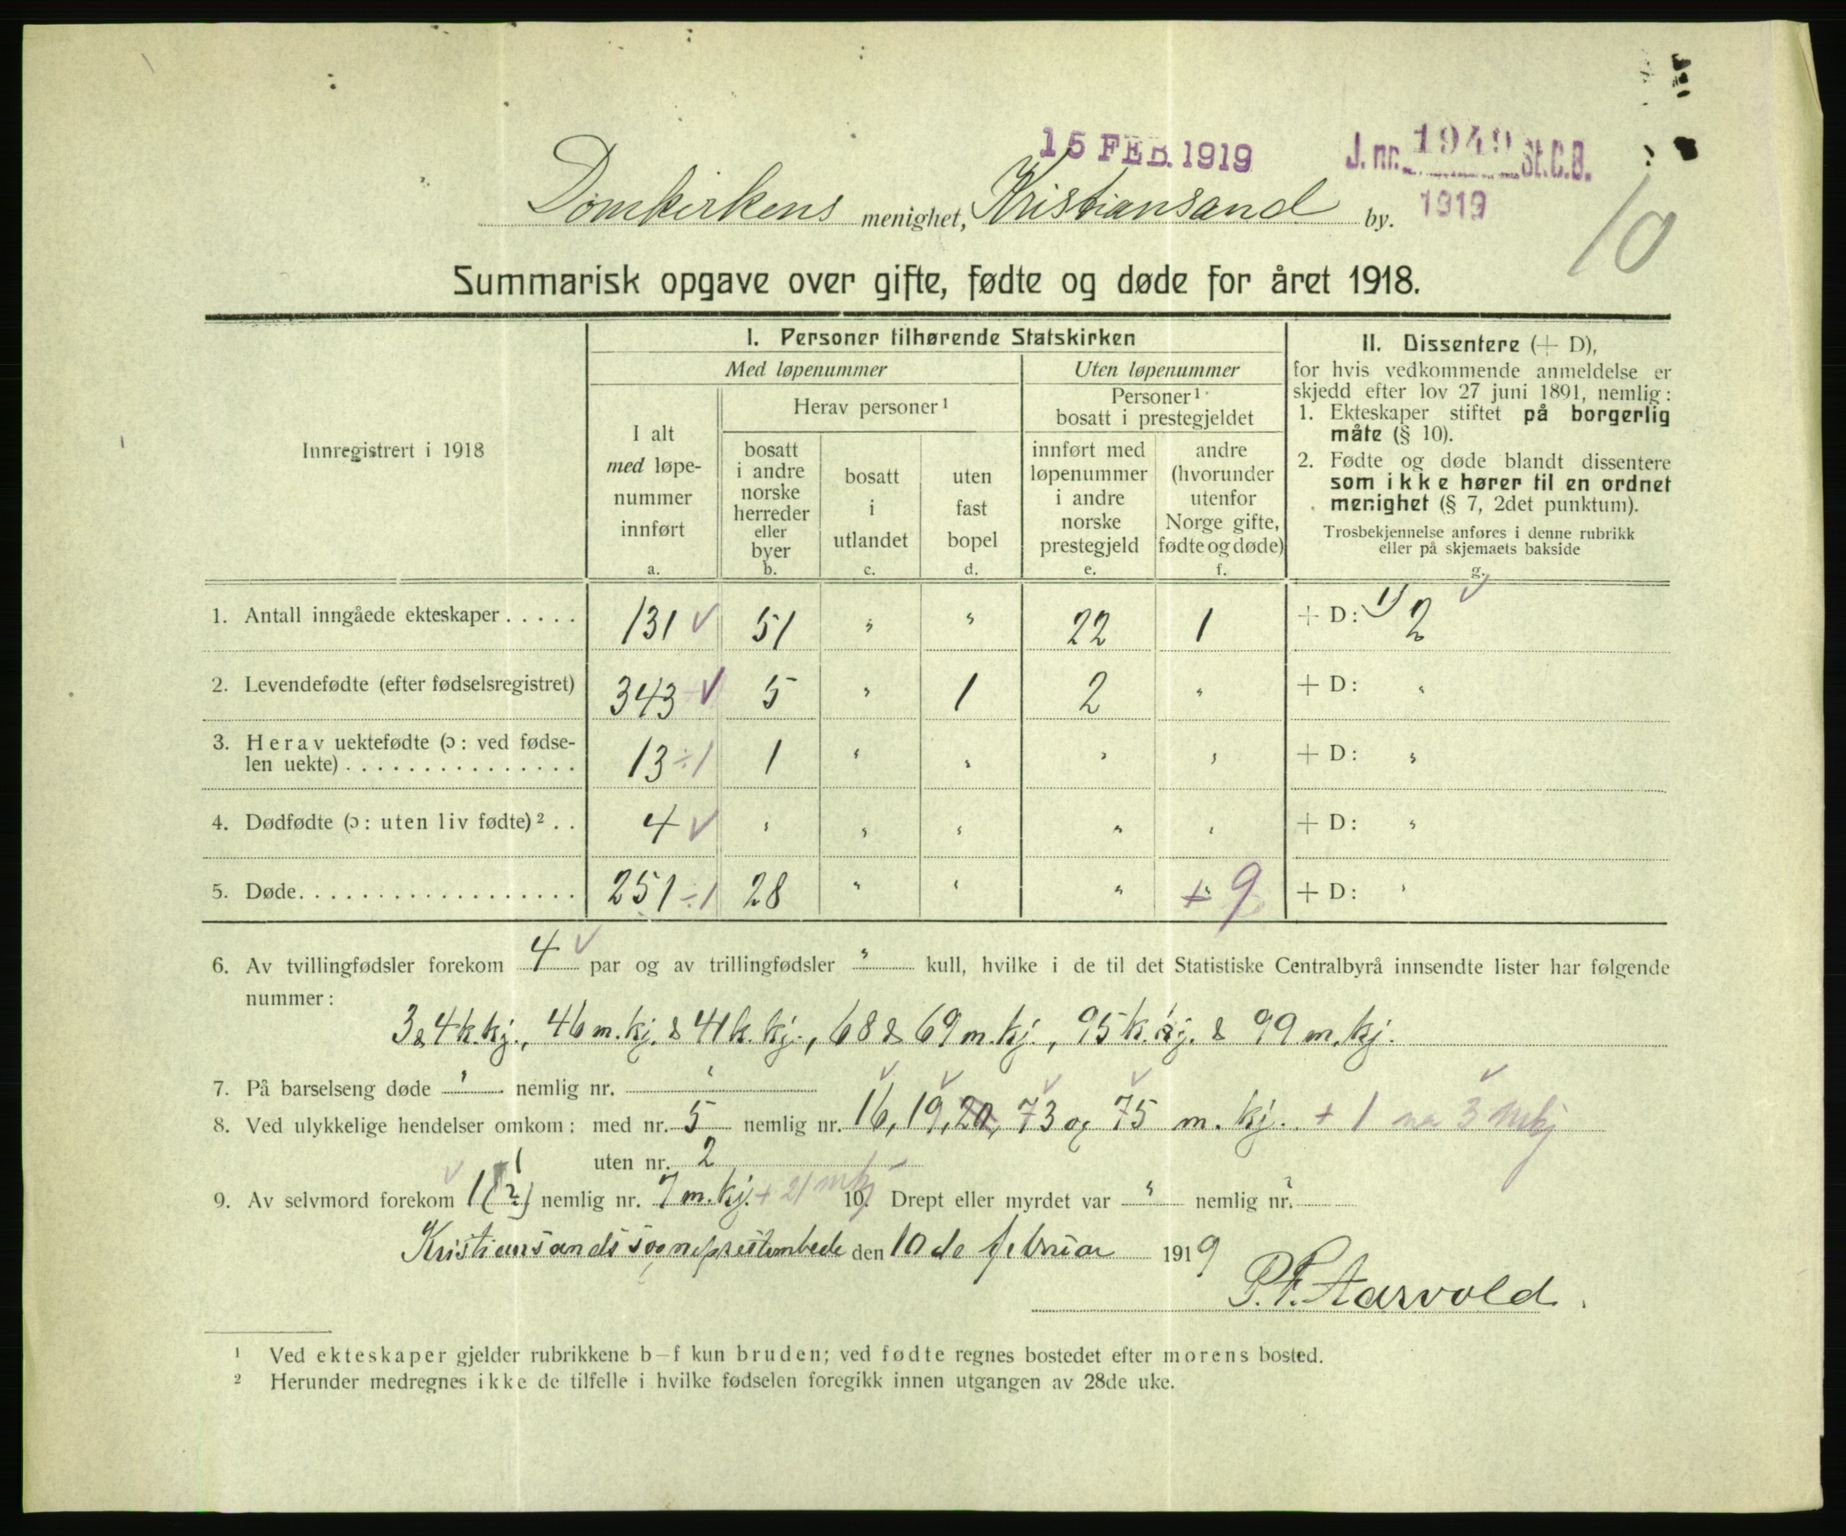 15 FEB. 1919
J. nr. 1949 St.C.B.
1919
10
Domkirkens menighet, Kristiansand by.
Summarisk opgave over gifte, fødte og døde for året 1918.
Innregistrert i 1918
I. Personer tilhørende Statskirken
Med løpenummer
Uten løpenummer
I alt
med løpe-
nummer
innført
a.
Herav personer¹
bosatt
i andre
norske
herreder
eller
byer
b.
bosatt
i
utlandet
c.
uten
fast
bopel
d.
Personer¹
bosatt i prestegjeldet
innført med
løpenummer
i andre
norske
prestegjeld
e.
andre
(hvorunder
utenfor
Norge gifte,
fødte og døde)
f.
II. Dissentere (+ D),
for hvis vedkommende anmeldelse er
skjedd efter lov 27 juni 1891, nemlig:
1. Ekteskaper stiftet på borgerlig
måte (§ 10).
2. Fødte og døde blandt dissentere
som ikke hører til en ordnet
menighet (§ 7, 2det punktum).
Trosbekjennelse anføres i denne rubrikk
eller på skjemaets bakside
g.
1. Antall inngåede ekteskaper . . . . . 131 ✓ 51 " " 22 1 + D: 1) 2 ✓
2. Levendefødte (efter fødselsregistret) 343 ✓ 5 " 1 2 " + D: "
3. Herav uektefødte (ɔ: ved fødse-
len uekte) . . . . . . . . . . . . . . . 13 ÷1 1 " " " " + D: "
4. Dødfødte (ɔ: uten liv fødte)² . . 4 ✓ " " " " " + D: "
5. Døde. . . . . . . . . . . . . . . . . . 251 ÷1 28 " " " + 9 + D: "
6. Av tvillingfødsler forekom 4 ✓ par og av trillingfødsler " kull, hvilke i de til det Statistiske Centralbyrå innsendte lister har følgende
nummer:
3 & 4 k.kj., 46 m.kj. & 41 k.kj., 68 & 69 m.kj., 95 k.kj. & 99 m.kj.
7. På barselseng døde " nemlig nr. "
8. Ved ulykkelige hendelser omkom: med nr. 5 nemlig nr. 16, 19, 20, 73 og 75 m. kj. + 1 3 mkj
uten nr. 2
9. Av selvmord forekom 1 (2) nemlig nr. 7 m.kj. + 21 mkj 10. Drept eller myrdet var " nemlig nr. "
Kristiansands sogneprestembede den 10de februar 1919
P. F. Aarvold.
¹ Ved ekteskaper gjelder rubrikkene b–f kun bruden; ved fødte regnes bostedet efter morens bosted.
² Herunder medregnes ikke de tilfelle i hvilke fødselen foregikk innen utgangen av 28de uke.